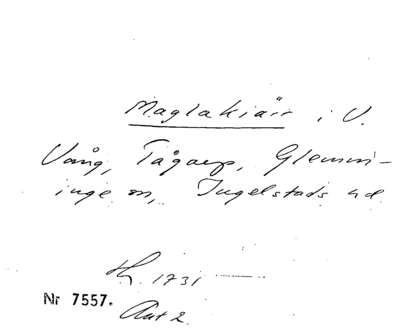 Maglakiärr i V.
Vång, Tågarp, Glemm-
inge sn, Ingelstads hd
1731
Nr 7557.
Akt 2